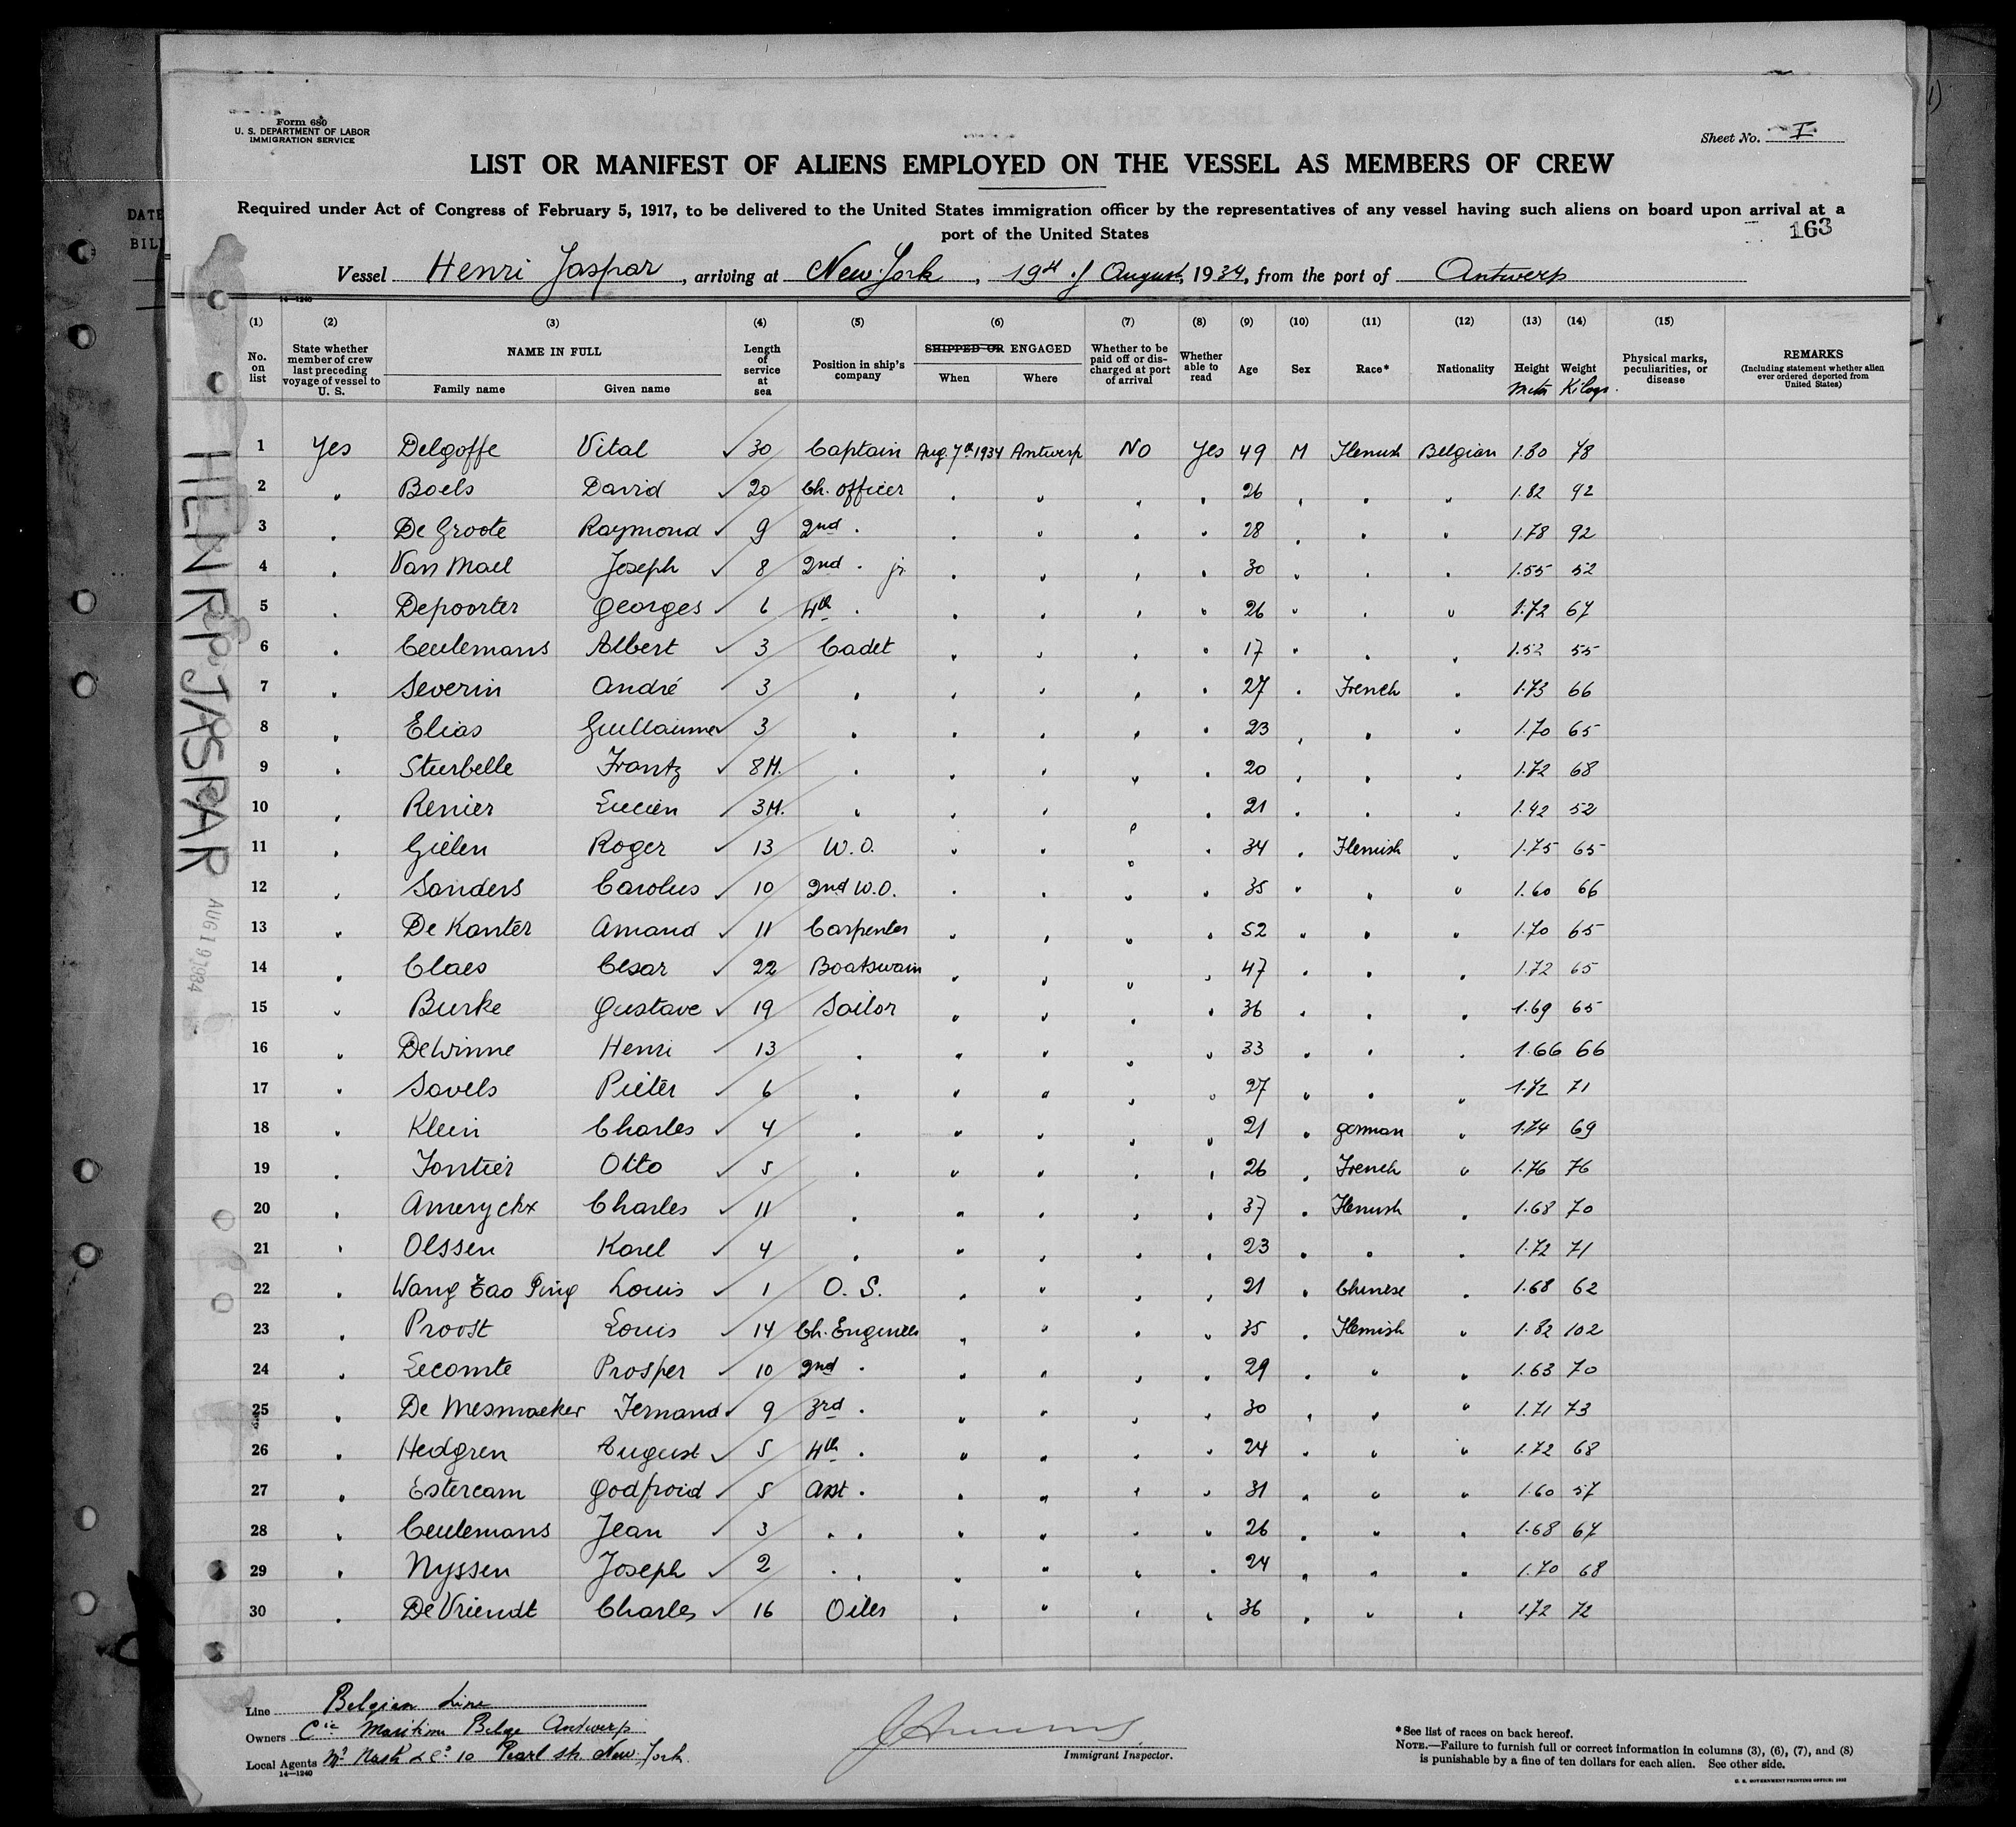 Form 680
U. S. DEPARTMENT OF LABOR
IMMIGRATION SERVICE
Sheet No. I
LIST OR MANIFEST OF ALIENS EMPLOYED ON THE VESSEL AS MEMBERS OF CREW
Required under Act of Congress of February 5, 1917, to be delivered to the United States immigration officer by the representatives of any vessel having such aliens on board upon arrival at a
port of the United States
163
Vessel Henri Jaspar, arriving at New York, 19th of August, 1934, from the port of Antwerp
14—1240
(1) (2) (3) (4) (5) (6) (7) (8) (9) (10) (11) (12) (13) (14) (15)
No. on list | State whether member of crew last preceding voyage of vessel to U. S. | NAME IN FULL Family name Given name | Length of service at sea | Position in ship's company | SHIPPED OR ENGAGED When Where | Whether to be paid off or discharged at port of arrival | Whether able to read | Age | Sex | Race* | Nationality | Height Meter | Weight Kilogs. | Physical marks, peculiarities, or disease | REMARKS (Including statement whether alien ever ordered deported from United States)
1 Yes Delgoffe Vital ✓ 30 Captain Aug. 7th 1934 Antwerp No Yes 49 M Flemish Belgian 1.80 78
2 " Boels David ✓ 20 Ch. officer " " " " 26 " " " 1.82 92
3 " De Groote Raymond ✓ 9 2nd " " " " " 28 " " " 1.78 92
4 " Van Mael Joseph ✓ 8 2nd " jr " " " " 30 " " " 1.55 52
5 " Depoorter Georges ✓ 6 4th " " " " " 26 " " " 1.72 67
6 " Ceulemans Albert ✓ 3 Cadet " " " " 17 " " " 1.52 55
7 " Severin André ✓ 3 " " " " " 27 " French " 1.73 66
8 " Elias Guillaume ✓ 3 " " " " " 23 " " " 1.70 65
9 " Sturbelle Frantz ✓ 8M. " " " " " 20 " " " 1.72 68
10 " Renier Lucien ✓ 3M. " " " " " 21 " " " 1.42 52
11 " Gielen Roger ✓ 13 W.O. " " " " 34 " Flemish " 1.75 65
12 " Sanders Carolus ✓ 10 2nd W.O. " " " " 35 " " " 1.60 66
13 " De Kanter Amand ✓ 11 Carpenter " " " " 52 " " " 1.70 65
14 " Claes Cesar ✓ 22 Boatswain " " " " 47 " " " 1.72 65
15 " Burke Gustave ✓ 19 Sailor " " " " 36 " " " 1.69 65
16 " DeWinne Henri ✓ 13 " " " " " 33 " " " 1.66 66
17 " Savels Pieter ✓ 6 " " " " " 27 " " " 1.72 71
18 " Klein Charles ✓ 4 " " " " " 21 " german " 1.74 69
19 " Fontier Otto ✓ 5 " " " " " 26 " French " 1.76 76
20 " Amerychx Charles ✓ 11 " " " " " 37 " Flemish " 1.68 70
21 " Olssen Karel ✓ 4 " " " " " 23 " " " 1.72 71
22 " Wang Tao Ping Louis ✓ 1 O. S. " " " " 21 " Chinese " 1.68 62
23 " Proost Louis ✓ 14 Ch. Engineer " " " " 35 " Flemish " 1.82 102
24 " Lecomte Prosper ✓ 10 2nd " " " " " 29 " " " 1.63 70
25 " De Mesmaeker Fernand ✓ 9 3rd " " " " " 30 " " " 1.71 73
26 " Hedgren August ✓ 5 4th " " " " " 24 " " " 1.72 68
27 " Estercam Godfroid ✓ 5 Asst " " " " " 31 " " " 1.60 57
28 " Ceulemans Jean ✓ 3 " " " " " " 26 " " " 1.68 67
29 " Nyssen Joseph ✓ 2 " " " " " " 24 " " " 1.70 68
30 " DeVriendt Charles ✓ 16 Oiler " " " " 36 " " " 1.72 72
HENRI JASPAR
AUG 19 1934
DATE
BILL
Line Belgian Line
Owners Cie Maritime Belge Antwerp
Local Agents Nash & Co 10 Pearl str New York
14—1240
Immigrant Inspector.
*See list of races on back hereof.
NOTE.—Failure to furnish full or correct information in columns (3), (6), (7), and (8)
is punishable by a fine of ten dollars for each alien. See other side.
U. S. GOVERNMENT PRINTING OFFICE